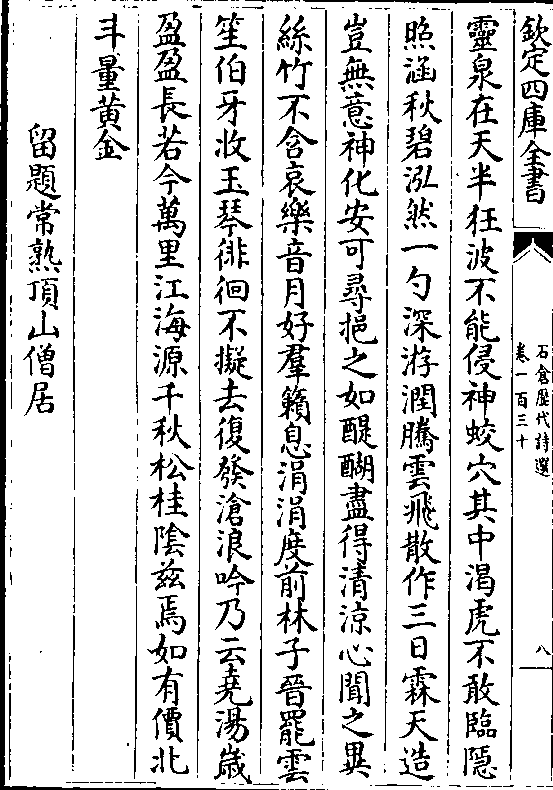 欽定四庫全書
石倉歷代詩選
卷一百三十
八
靈泉在天半狂波不能侵神蛟穴其中渴虎不敢臨隱
照涵秋碧泓然一勺深游潤騰雲飛散作三日霖天造
豈無意神化安可尋挹之如醍醐盡得清涼心聞之異
絲竹不含哀樂音月好羣籟息涓涓度前林子晉罷雲
笙伯牙收玉琴徘徊不擬去復發滄浪吟乃云堯湯歲
盈盈長若今萬里江海源千秋松桂陰兹焉如有價北
斗量黄金
留題常熟頂山僧居